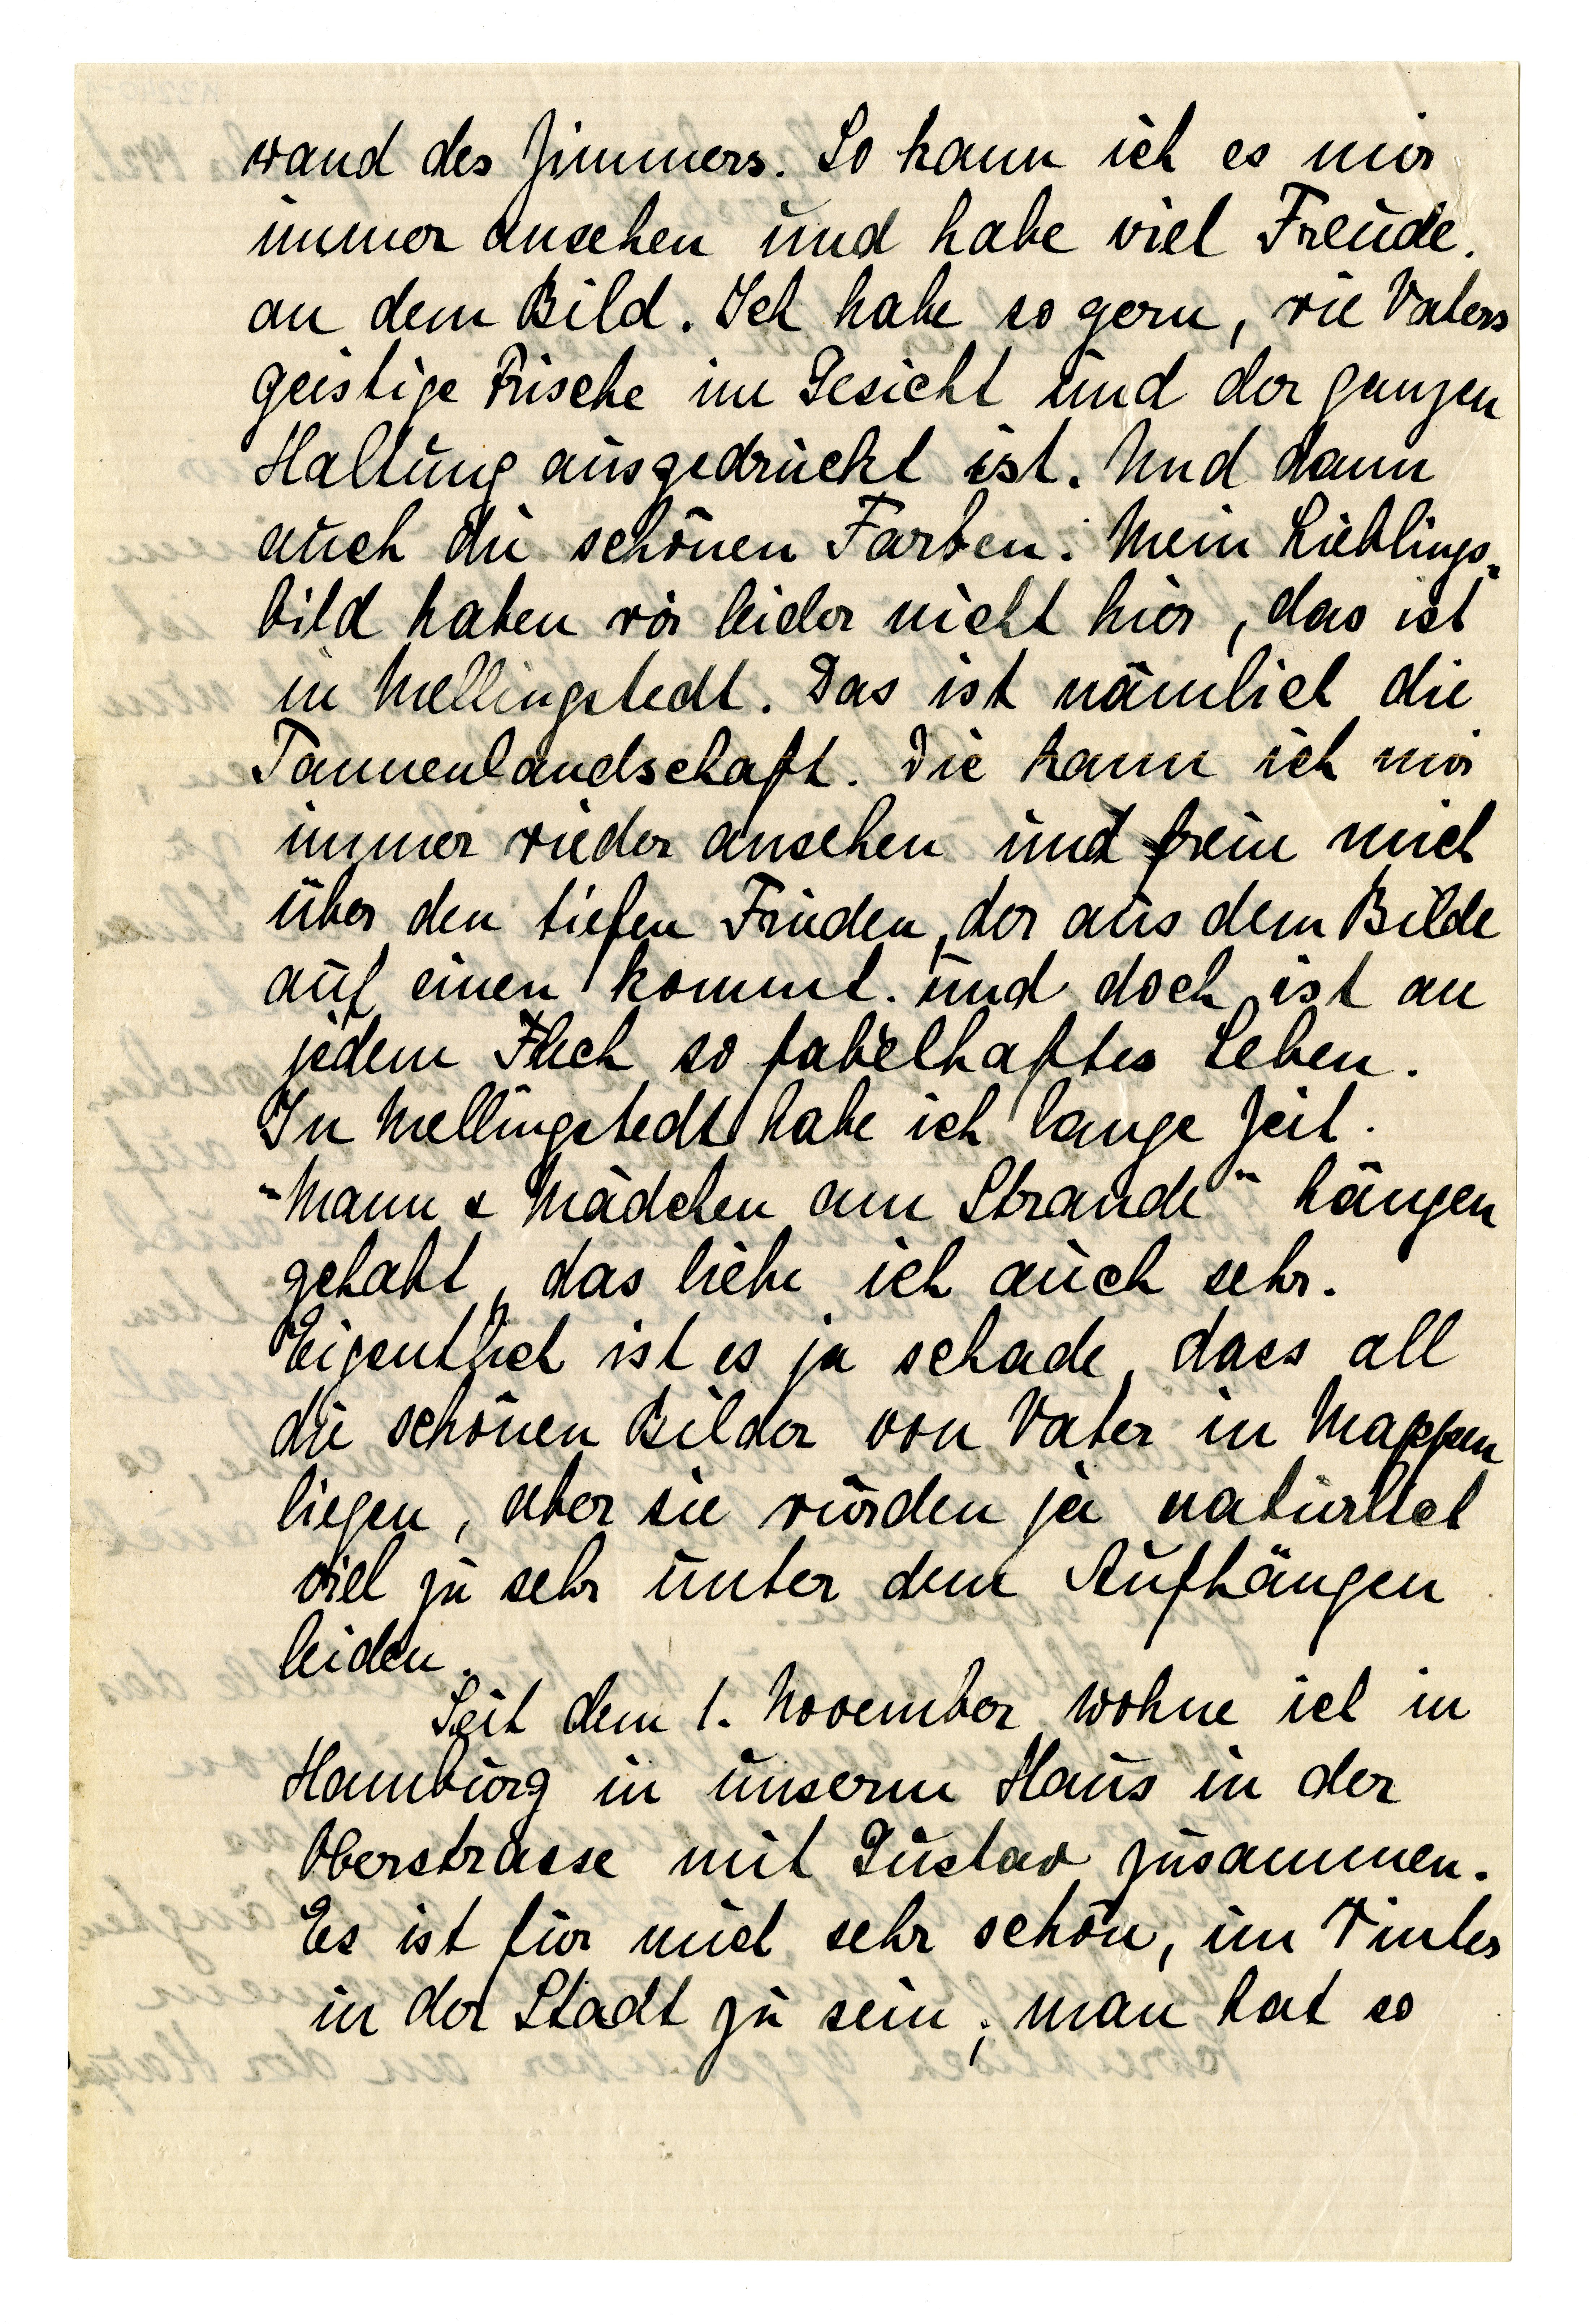 wand des Zimmers. So kann ich es mir
immer ansehen und habe viel Freude.
an dem Bild. Ich habe so gern, wie Vaters
geistige Frische im Gesicht und der ganzen
Haltung ausgedrückt ist. Und dann
auch die schönen Farben. Mein Lieblings-
bild haben wir leider nicht hier, das ist
in Mellingstedt. Das ist nämlich die
Tannenlandschaft. Die kann ich mir
immer wieder ansehen und freue mich
über den tiefen Frieden, der aus dem Bilde
auf einen kommt. und doch ist an
jedem Fleck so fabelhaftes Leben.
In Mellingstedt habe ich lange Zeit.
"Mann & Mädchen am Strande" hängen
gehabt, das liebe ich auch sehr.
Eigentlich ist es ja schade, dass all
die schönen Bilder von Vater in Mappen
liegen, aber sie würden ja natürlich
viel zu sehr unter dem Aufhängen
leiden.
Seit dem 1. November wohne ich in
Hamburg in unserm Haus in der
Oberstrasse mit Gustav zusammen.
Es ist für mich sehr schön, im Winter
in der Stadt zu sein; man hat so